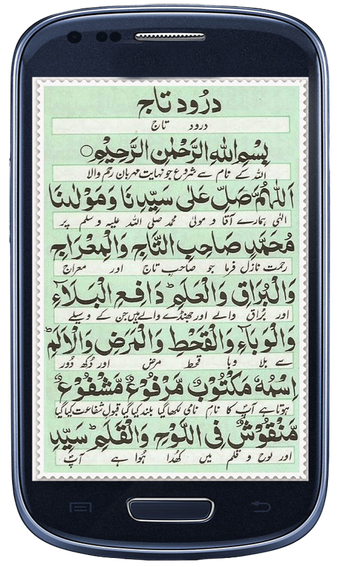 درود تاج
درود تاج
بِسْمِ اللهِ الرَّحْمٰنِ الرَّحِيْمِ
اللہ کے نام سے شروع جو نہایت مہربان رحم والا
اَللّٰهُمَّ صَلِّ عَلٰى سَيِّدِنَا وَمَوْلٰىنَا
الٰہی ہمارے آقا و مولیٰ محمد صلی اللہ علیہ وسلم پر
مُحَمَّدٍ صَاحِبِ التَّاجِ وَالْمِعْرَاجِ
رحمت نازل فرما جو صاحب تاج اور معراج
وَالْبُرَاقِ وَالْعَلَمِ ط دَافِعِ الْبَلَآءِ
اور براق والے اور جھنڈے والے ہیں جن کے وسیلے
وَالْوَبَآءِ وَالْقَحْطِ وَالْمَرَضِ وَالْاَلَمِ ط
سے بلا وبا قحط مرض اور دکھ دور
اِسْمُهٗ مَكْتُوْبٌ مَّرْفُوْعٌ مَّشْفُوْعٌ
ہوتا ہے آپ کا نام نامی لکھا گیا بلند کیا گیا قبول شفاعت کیا گیا
مَّنْقُوْشٌ فِى اللَّوْحِ وَالْقَلَمِ ط سَيِّدِ
اور لوح و قلم میں کھدا ہوا ہے آپ